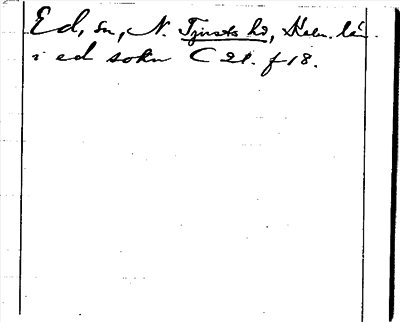 Ed, sn, N. Tjusts hd, Kalm. län.
i ed sokn C 21. f 18.